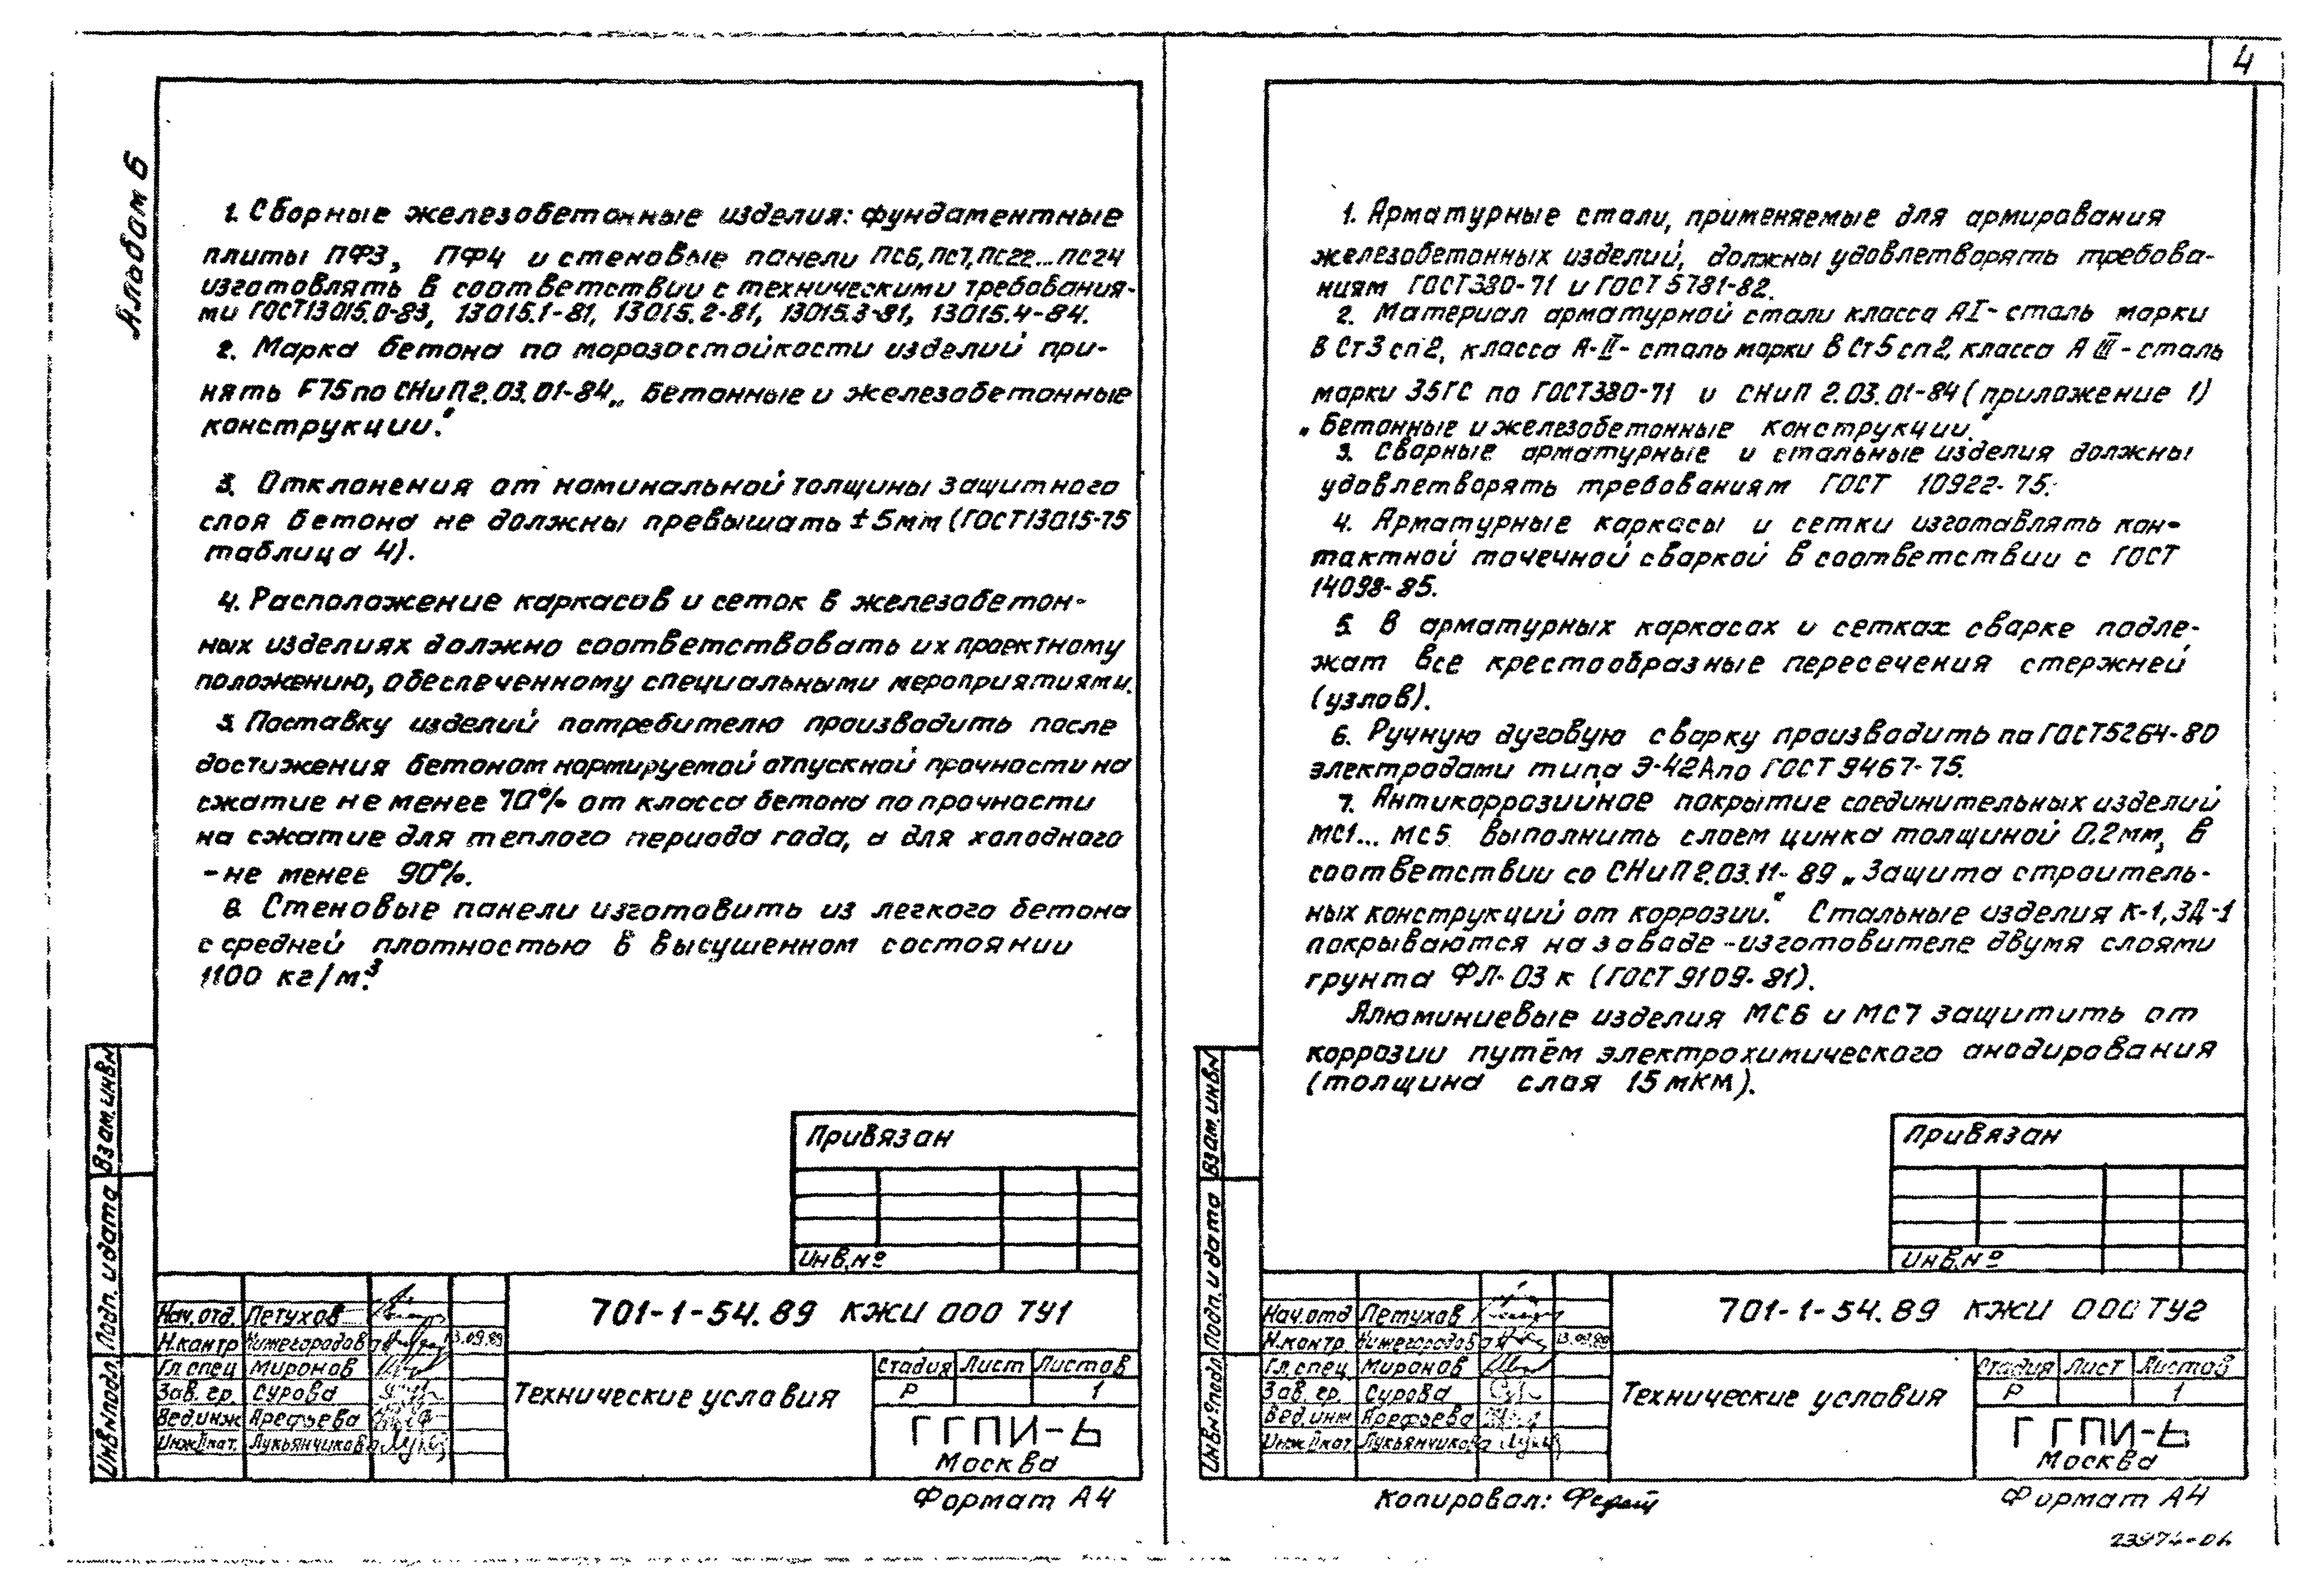 4
Альбом 6
1. Сборные железобетонные изделия: фундаментные
плиты ПФ3, ПФ4 и стеновые панели ПС6, ПС7, ПС22...ПС24
изготовлять в соответствии с техническими требования-
ми ГОСТ 13015.0-83, 13015.1-81, 13015.2-81, 13015.3-81, 13015.4-84.
2. Марка бетона по морозостойкости изделий при-
нять F75 по СНиП 2.03.01-84 „Бетонные и железобетонные
конструкции."
3. Отклонения от номинальной толщины защитного
слоя бетона не должны превышать ±5мм (ГОСТ 13015-75
таблица 4).
4. Расположение каркасов и сеток в железобетон-
ных изделиях должно соответствовать их проектному
положению, обеспеченному специальными мероприятиями.
5. Поставку изделий потребителю производить после
достижения бетоном нормируемой отпускной прочности на
сжатие не менее 70% от класса бетона по прочности
на сжатие для теплого периода года, а для холодного
-не менее 90%.
6. Стеновые панели изготовить из легкого бетона
с средней плотностью в высушенном состоянии
1100 кг/м³.
Привязан
Инв.№
701-1-54.89 КЖИ 000 ТУ1
Нач.отд. Петухов
Н.контр Нижегородова 13.09.89
Гл.спец Миронов
Зав. гр. Сурова
Вед.инж Арефьева
Инж.IIкат. Лукьянчикова
Технические условия
Стадия Лист Листов
Р 1
ГГПИ-6
Москва
Формат А4
Взам.инв№
Подп. и дата
Инв№подл
1. Арматурные стали, применяемые для армирования
железобетонных изделий, должны удовлетворять требова-
ниям ГОСТ 380-71 и ГОСТ 5781-82.
2. Материал арматурной стали класса АI- сталь марки
ВСт3сп2, класса А-II- сталь марки ВСт5сп2, класса АIII-сталь
марки 35ГС по ГОСТ 380-71 и СНиП 2.03.01-84 (приложение 1)
„Бетонные и железобетонные конструкции."
3. Сварные арматурные и стальные изделия должны
удовлетворять требованиям ГОСТ 10922-75.
4. Арматурные каркасы и сетки изготавлять кон-
тактной точечной сваркой в соответствии с ГОСТ
14098-85.
5. В арматурных каркасах и сетках сварке подле-
жат все крестообразные пересечения стержней
(узлов).
6. Ручную дуговую сварку производить по ГОСТ 5264-80
электродами типа Э-42А по ГОСТ 9467-75.
7. Антикоррозийное покрытие соединительных изделий
МС1... МС5 выполнить слоем цинка толщиной 0.2мм, в
соответствии со СНиП 2.03.11-89 „Защита строитель-
ных конструкций от коррозии." Стальные изделия К-1, ЗД-1
покрываются на заводе-изготовителе двумя слоями
грунта ФЛ-03к (ГОСТ 9109-81).
Алюминиевые изделия МС6 и МС7 защитить от
коррозии путём электрохимического анодирования
(толщина слоя 15 мкм).
Привязан
Инв.№
701-1-54.89 КЖИ 000 ТУ2
Нач.отд Петухов
Н.контр. Нижегородова 13.09.89
Гл.спец Миронов
Зав. гр. Сурова
Вед.инж Арефьева
Инж.IIкат Лукьянчикова
Технические условия
Стадия Лист Листов
Р 1
ГГПИ-6
Москва
Взам.инв№
Подп. и дата
Инв№подл
Копировал:
Формат А4